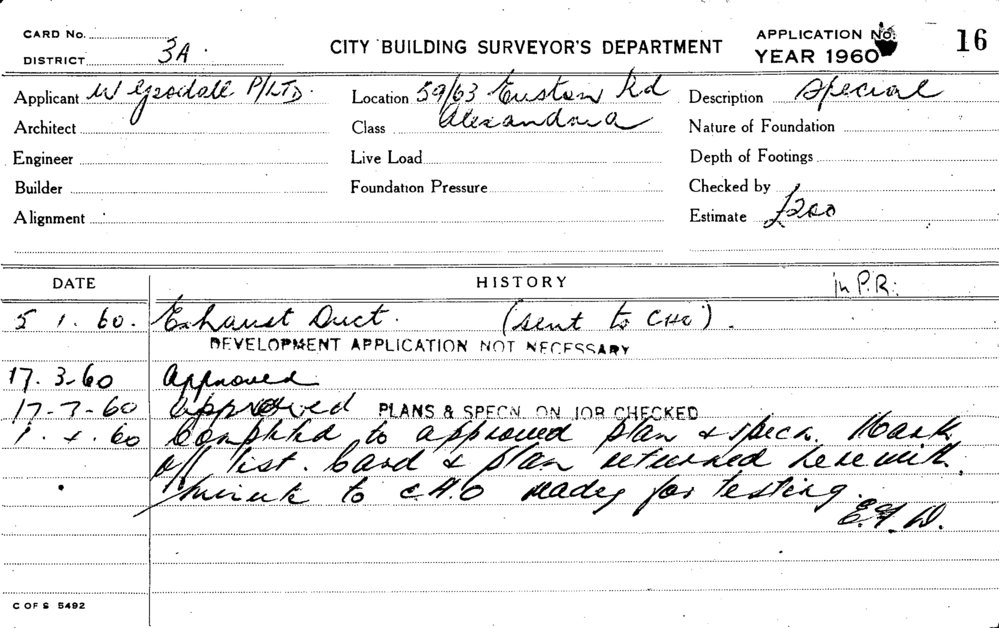 CARD No.
DISTRICT 3A.
CITY BUILDING SURVEYOR'S DEPARTMENT
APPLICATION No.
YEAR 1960
16
Applicant W P/LTD.
Location 59/63 Euston Rd
Alexandria
Description Special
Architect
Class
Nature of Foundation
Engineer
Live Load
Depth of Footings
Builder
Foundation Pressure
Checked by
Alignment
Estimate £200
DATE
HISTORY
in P.R.
5 1. 60. Exhaust Duct. (sent to CHO).
DEVELOPMENT APPLICATION NOT NECESSARY
17. 3-60 Approved
17-3-60 Approved PLANS & SPECN ON JOB CHECKED
1. 4. 60 Completed to approved plan & specn. Mark
off list. Card & plan returned herewith.
Minute to C.H.O ready for testing.
C OF S 5492